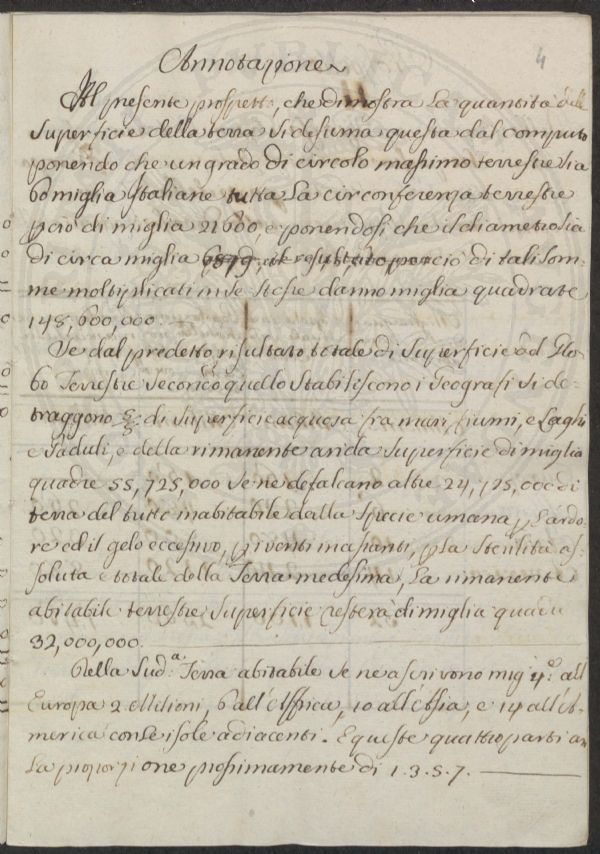 Annotazione
4
Al presente prospetto, che dimostra la quantità della
superficie della terra si desuma questa dal computo
ponendo che un grado di circolo massimo terrestre sia
60 miglia Italiane tutta la circonferenza terrestre
perciò di miglia 21600, e ponendosi che il diametro sia
di circa miglia 6879, il resultato perciò di tali som-
me moltiplicati in se stesse danno miglia quadrate
148,600,000.
Se dal predetto risultato totale di superficie del Glo-
bo Terrestre secondo quello stabiliscono i Geografi si de-
traggono di superficie acquosa fra mari, fiumi, e Laghi
e Paduli, e della rimanente arida superficie di miglia
quadre 55,725,000 se ne defalcano altre 24,725,000 di
terra del tutto inabitabile dalla specie umana, p l'ardo-
re ed il gelo eccessivo, p i venti, p la sterilità as-
soluta e totale della Terra medesima, la rimanente
abitabile terrestre superficie resterà di miglia quadre
32,000,000.
Della Sud.a Terra abitabile se ne ascrivono mig q.e all
Europa 2 Milioni, 6 all'Affrica, 10 all'Asia, e 14 all'A-
merica con le isole adiacenti. E queste quattro parti an
la proporzione prossimamente di 1. 3. 5. 7.